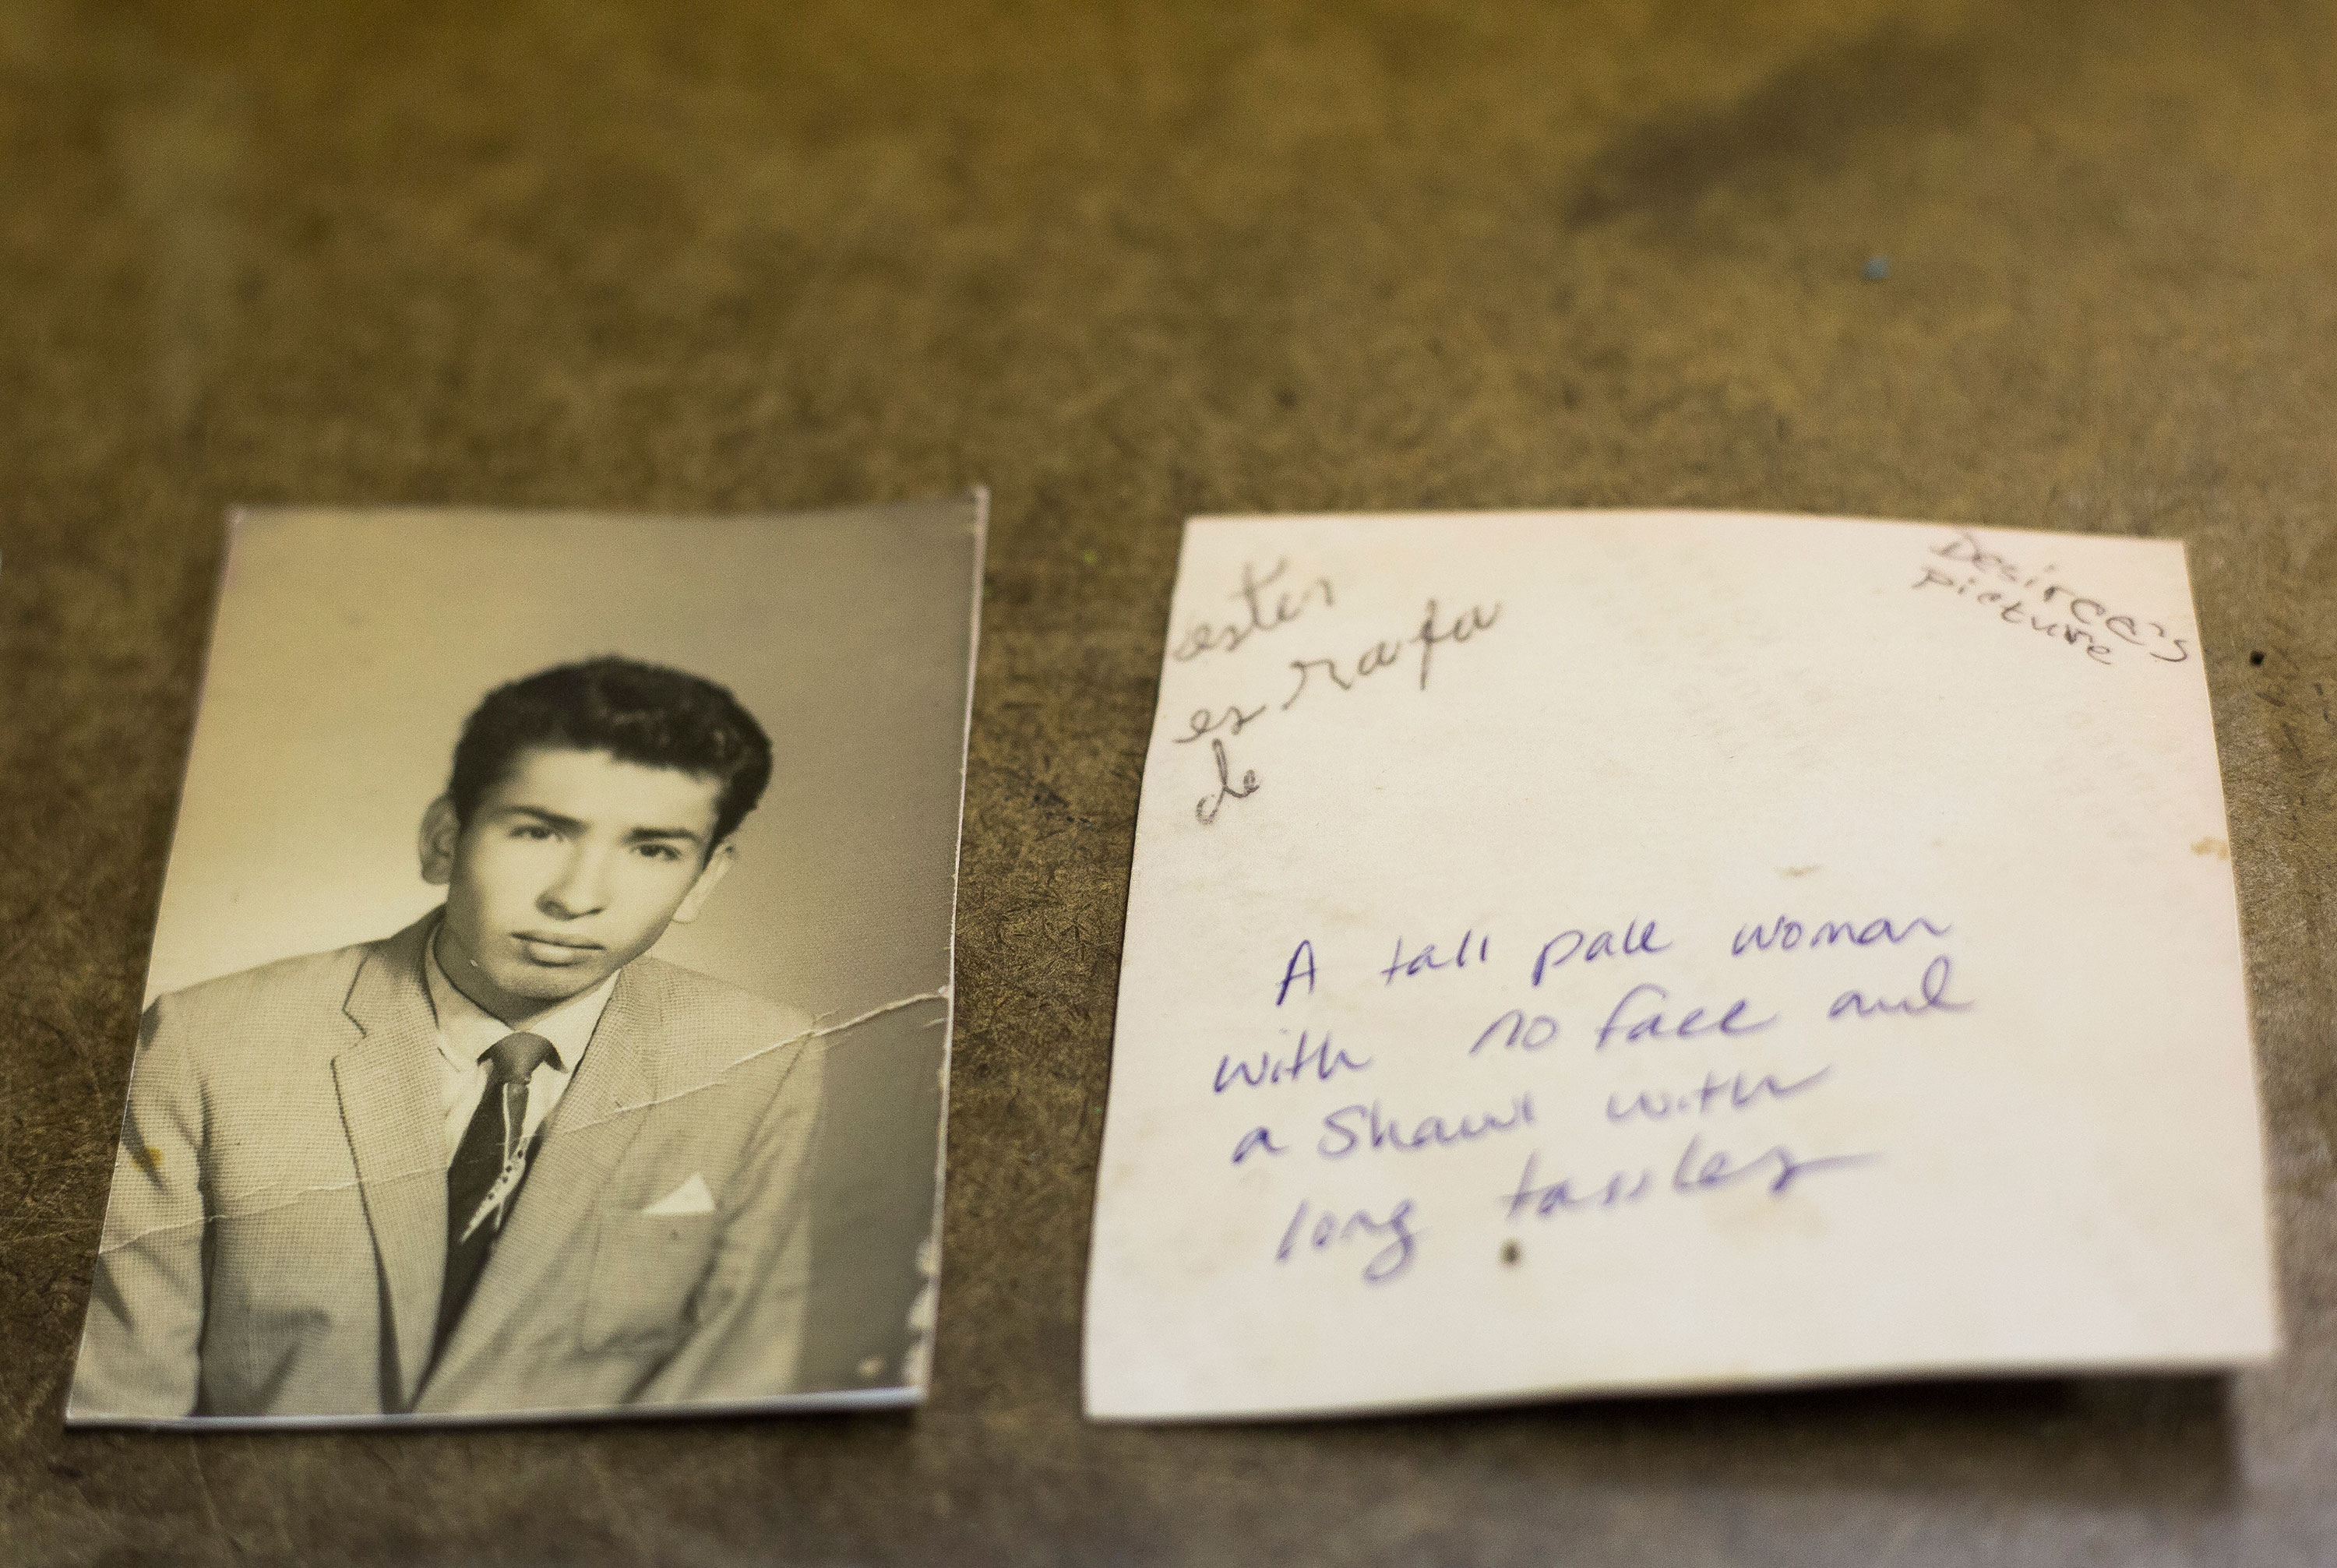 ester
es rafa
de
Desiree's
picture
A tall pale woman
with no face and
a Shawl with
long tassles